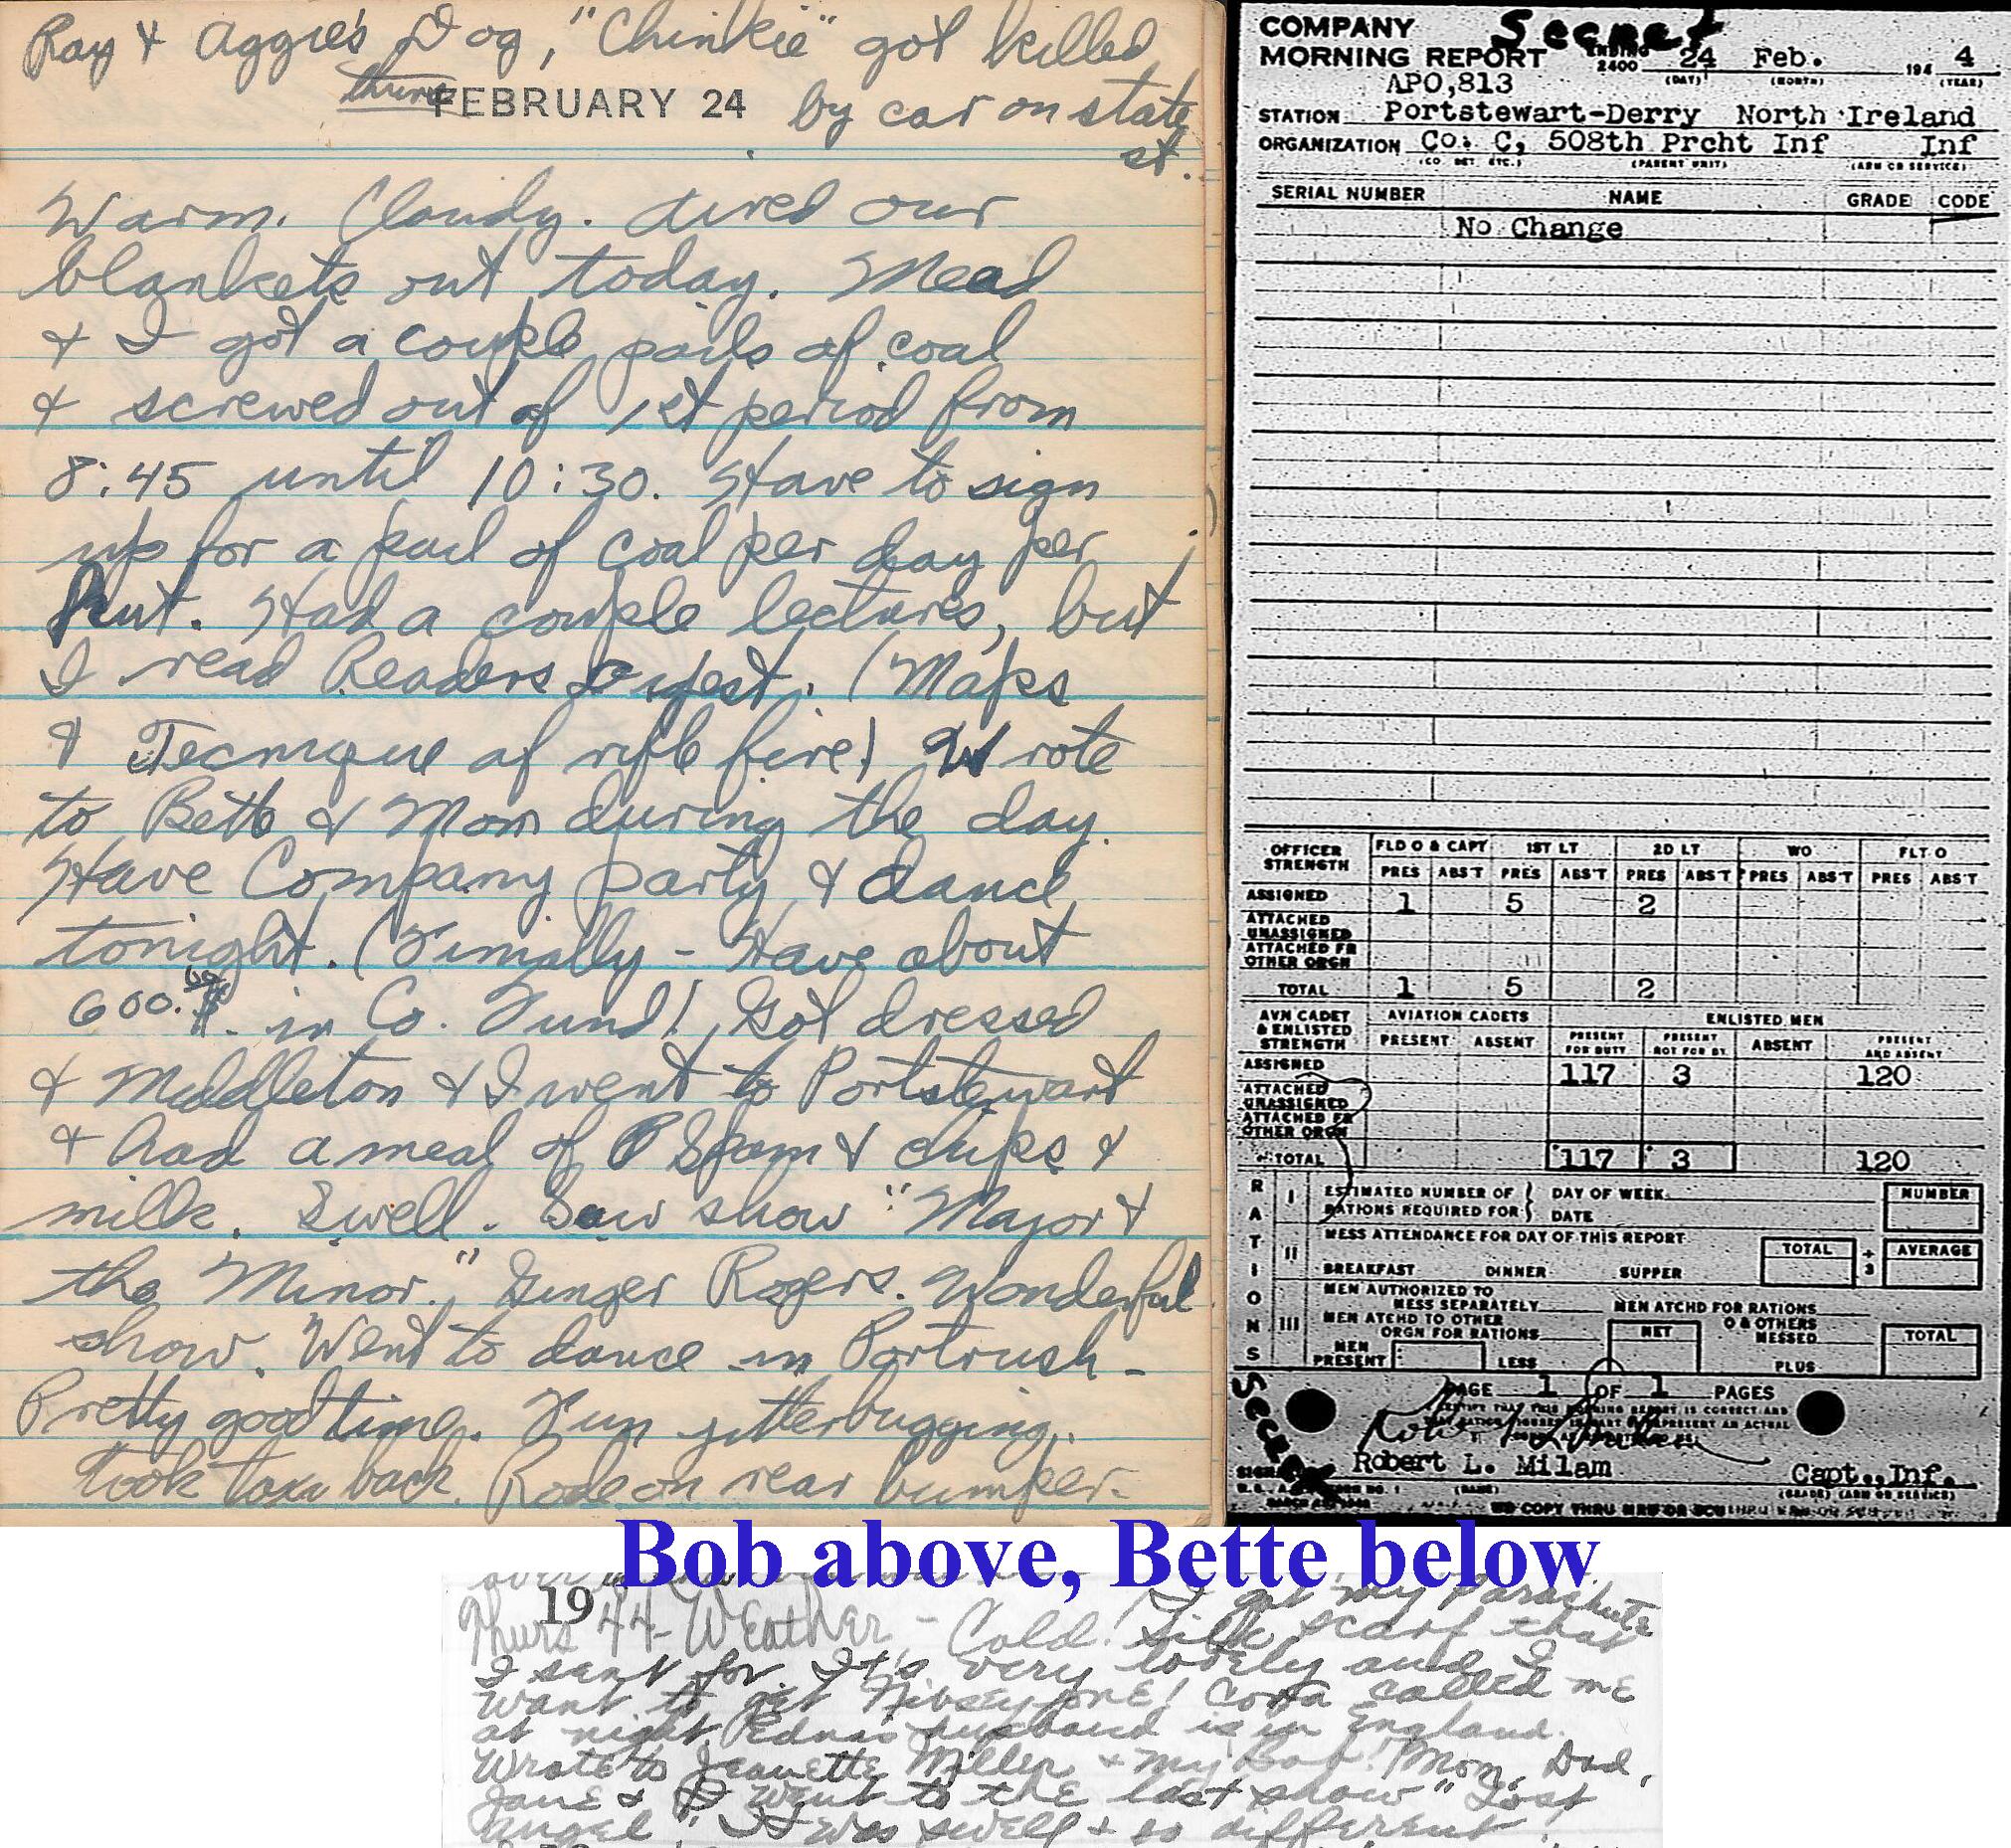 Ray & Aggie's Dog, "Chinkie" got killed
thurs FEBRUARY 24 by car on state
st.
Warm. Cloudy. Aired our
blankets out today. Mead
& I got a couple pails of coal
& screwed out of 1st period from
8:45 until 10:30. Have to sign
up for a pail of coal per day per
hut. Had a couple lectures, but
I read Readers Digest. (Maps
& Tecnique of rifle fire) Wrote
to Bette & Mom during the day.
Have Company party & dance
tonight. (Finally - Have about
600.00 $. in Co. Fund! Got dressed
& Middleton & I went to Portstewart
& had a meal of Spam & chips &
milk. Swell. Saw show "Major &
the Minor." Ginger Rogers. Wonderful
show. Went to dance in Portrush -
Pretty good time. Fun jitterbugging.
Took taxi back. Rode on rear bumper-
COMPANY Secret
MORNING REPORT ENDING 2400 24 Feb. 194 4
(DAY) (MONTH) (YEAR)
APO,813
STATION Portstewart-Derry North Ireland
ORGANIZATION Co. C, 508th Prcht Inf Inf
(CO. DET. ETC.) (PARENT UNIT) (ARM OR SERVICE)
SERIAL NUMBER NAME GRADE CODE
No Change
OFFICER STRENGTH FLD O & CAPT 1ST LT 2D LT WO FLT O
PRES ABS'T PRES ABS'T PRES ABS'T PRES ABS'T PRES ABS'T
ASSIGNED 1 5 2
ATTACHED UNASSIGNED
ATTACHED FR OTHER ORGN
TOTAL 1 5 2
AVN CADET & ENLISTED STRENGTH AVIATION CADETS ENLISTED MEN
PRESENT ABSENT PRESENT FOR DUTY PRESENT NOT FOR DY ABSENT PRESENT AND ABSENT
ASSIGNED 117 3 120
ATTACHED UNASSIGNED
ATTACHED FR OTHER ORGN
TOTAL 117 3 120
RATIONS
I ESTIMATED NUMBER OF RATIONS REQUIRED FOR DAY OF WEEK DATE NUMBER
II MESS ATTENDANCE FOR DAY OF THIS REPORT TOTAL ÷ 3 AVERAGE
BREAKFAST DINNER SUPPER
III MEN AUTHORIZED TO MESS SEPARATELY MEN ATCHD FOR RATIONS
MEN ATCHD TO OTHER ORGN FOR RATIONS NET O & OTHERS MESSED TOTAL
MEN PRESENT LESS PLUS
Secret
PAGE 1 OF 1 PAGES
Robert L. Milam Capt., Inf.
(NAME) (GRADE) (ARM OR SERVICE)
Bob above, Bette below
19
Thurs 44 - Weather - Cold! I got my Parachute
Silk scarf that
I sent for. It's very lovely and I
want to get Nibsey one! called me
at night. Edna's husband is in England.
Wrote to Jeanette Miller & my Bob! Mom, Dad,
Jane & I went to the last show "Lost
Angel" It was swell & so different!